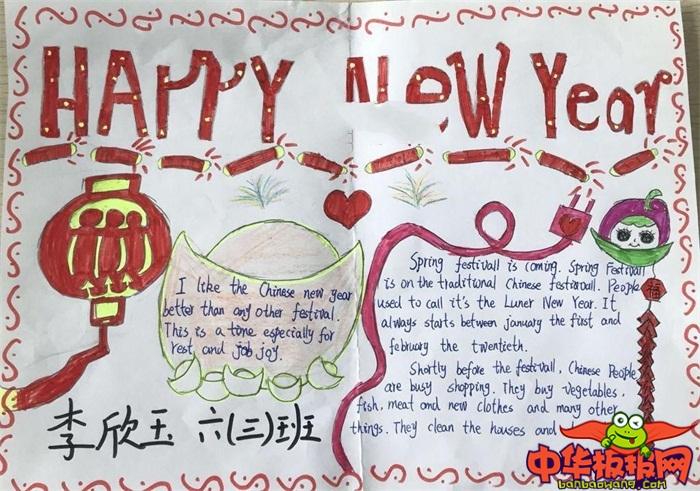 HAPPY New Year
I like the Chinese new year
better than any other festival.
This is a time especially for
rest and job joy.
Spring festivall is coming. Spring Festivall
is on the traditional Chinese festivall. People
used to call it's the Luner New Year. It
always starts between january the first and
february the twentieth.
Shortly before the festivall, Chinese People
are busy shopping. They buy vegetables,
fish, meat and new clothes and many other
things. They clean the houses and
福
李欣玉 六(三)班
中华板报网
banbaowang.com